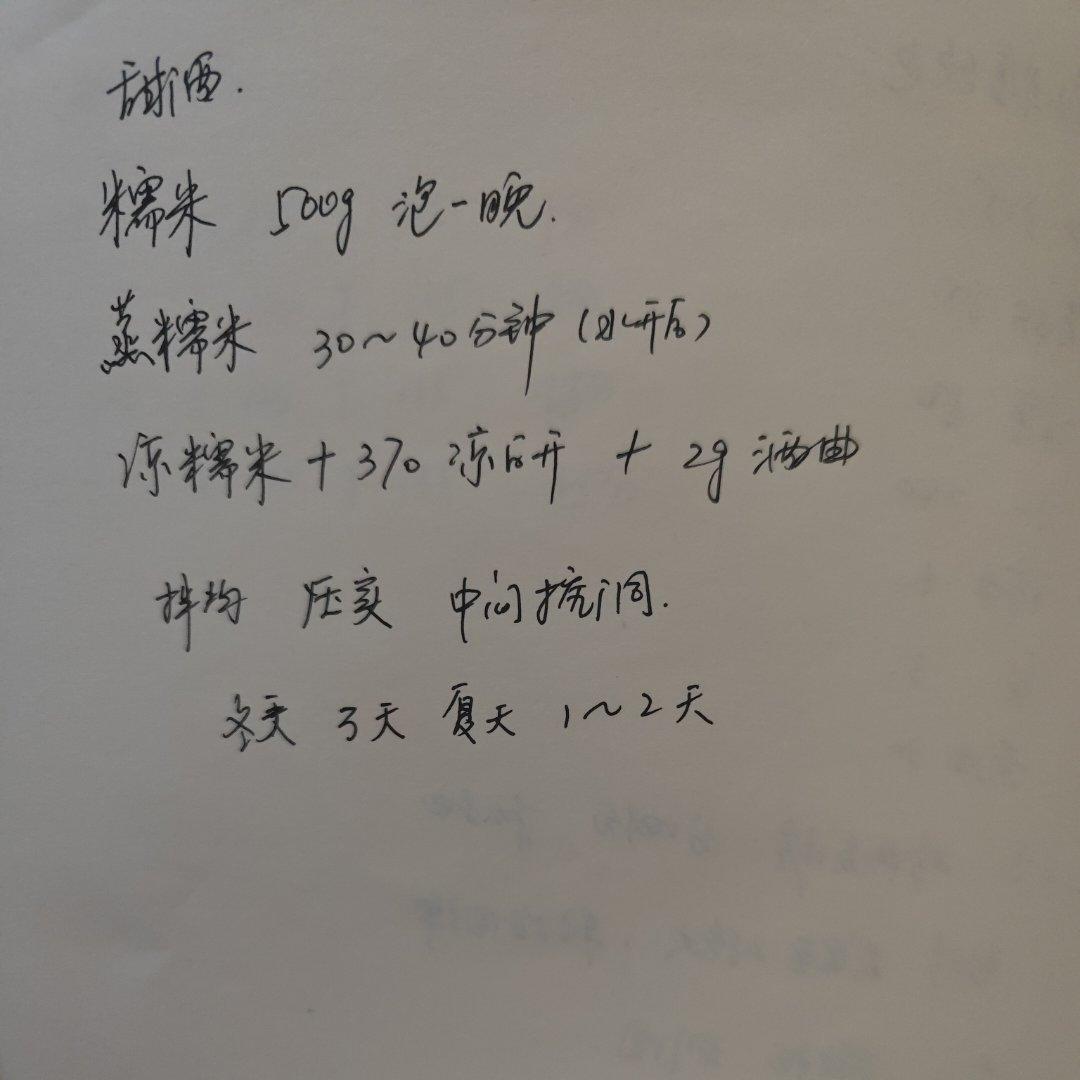 甜酒.
糯米 500g 泡一晚.
蒸糯米 30~40分钟(水开后)
凉糯米+370凉白开 + 2g 酒曲
拌均 压实 中间挖洞.
冬天 3天 夏天 1~2天